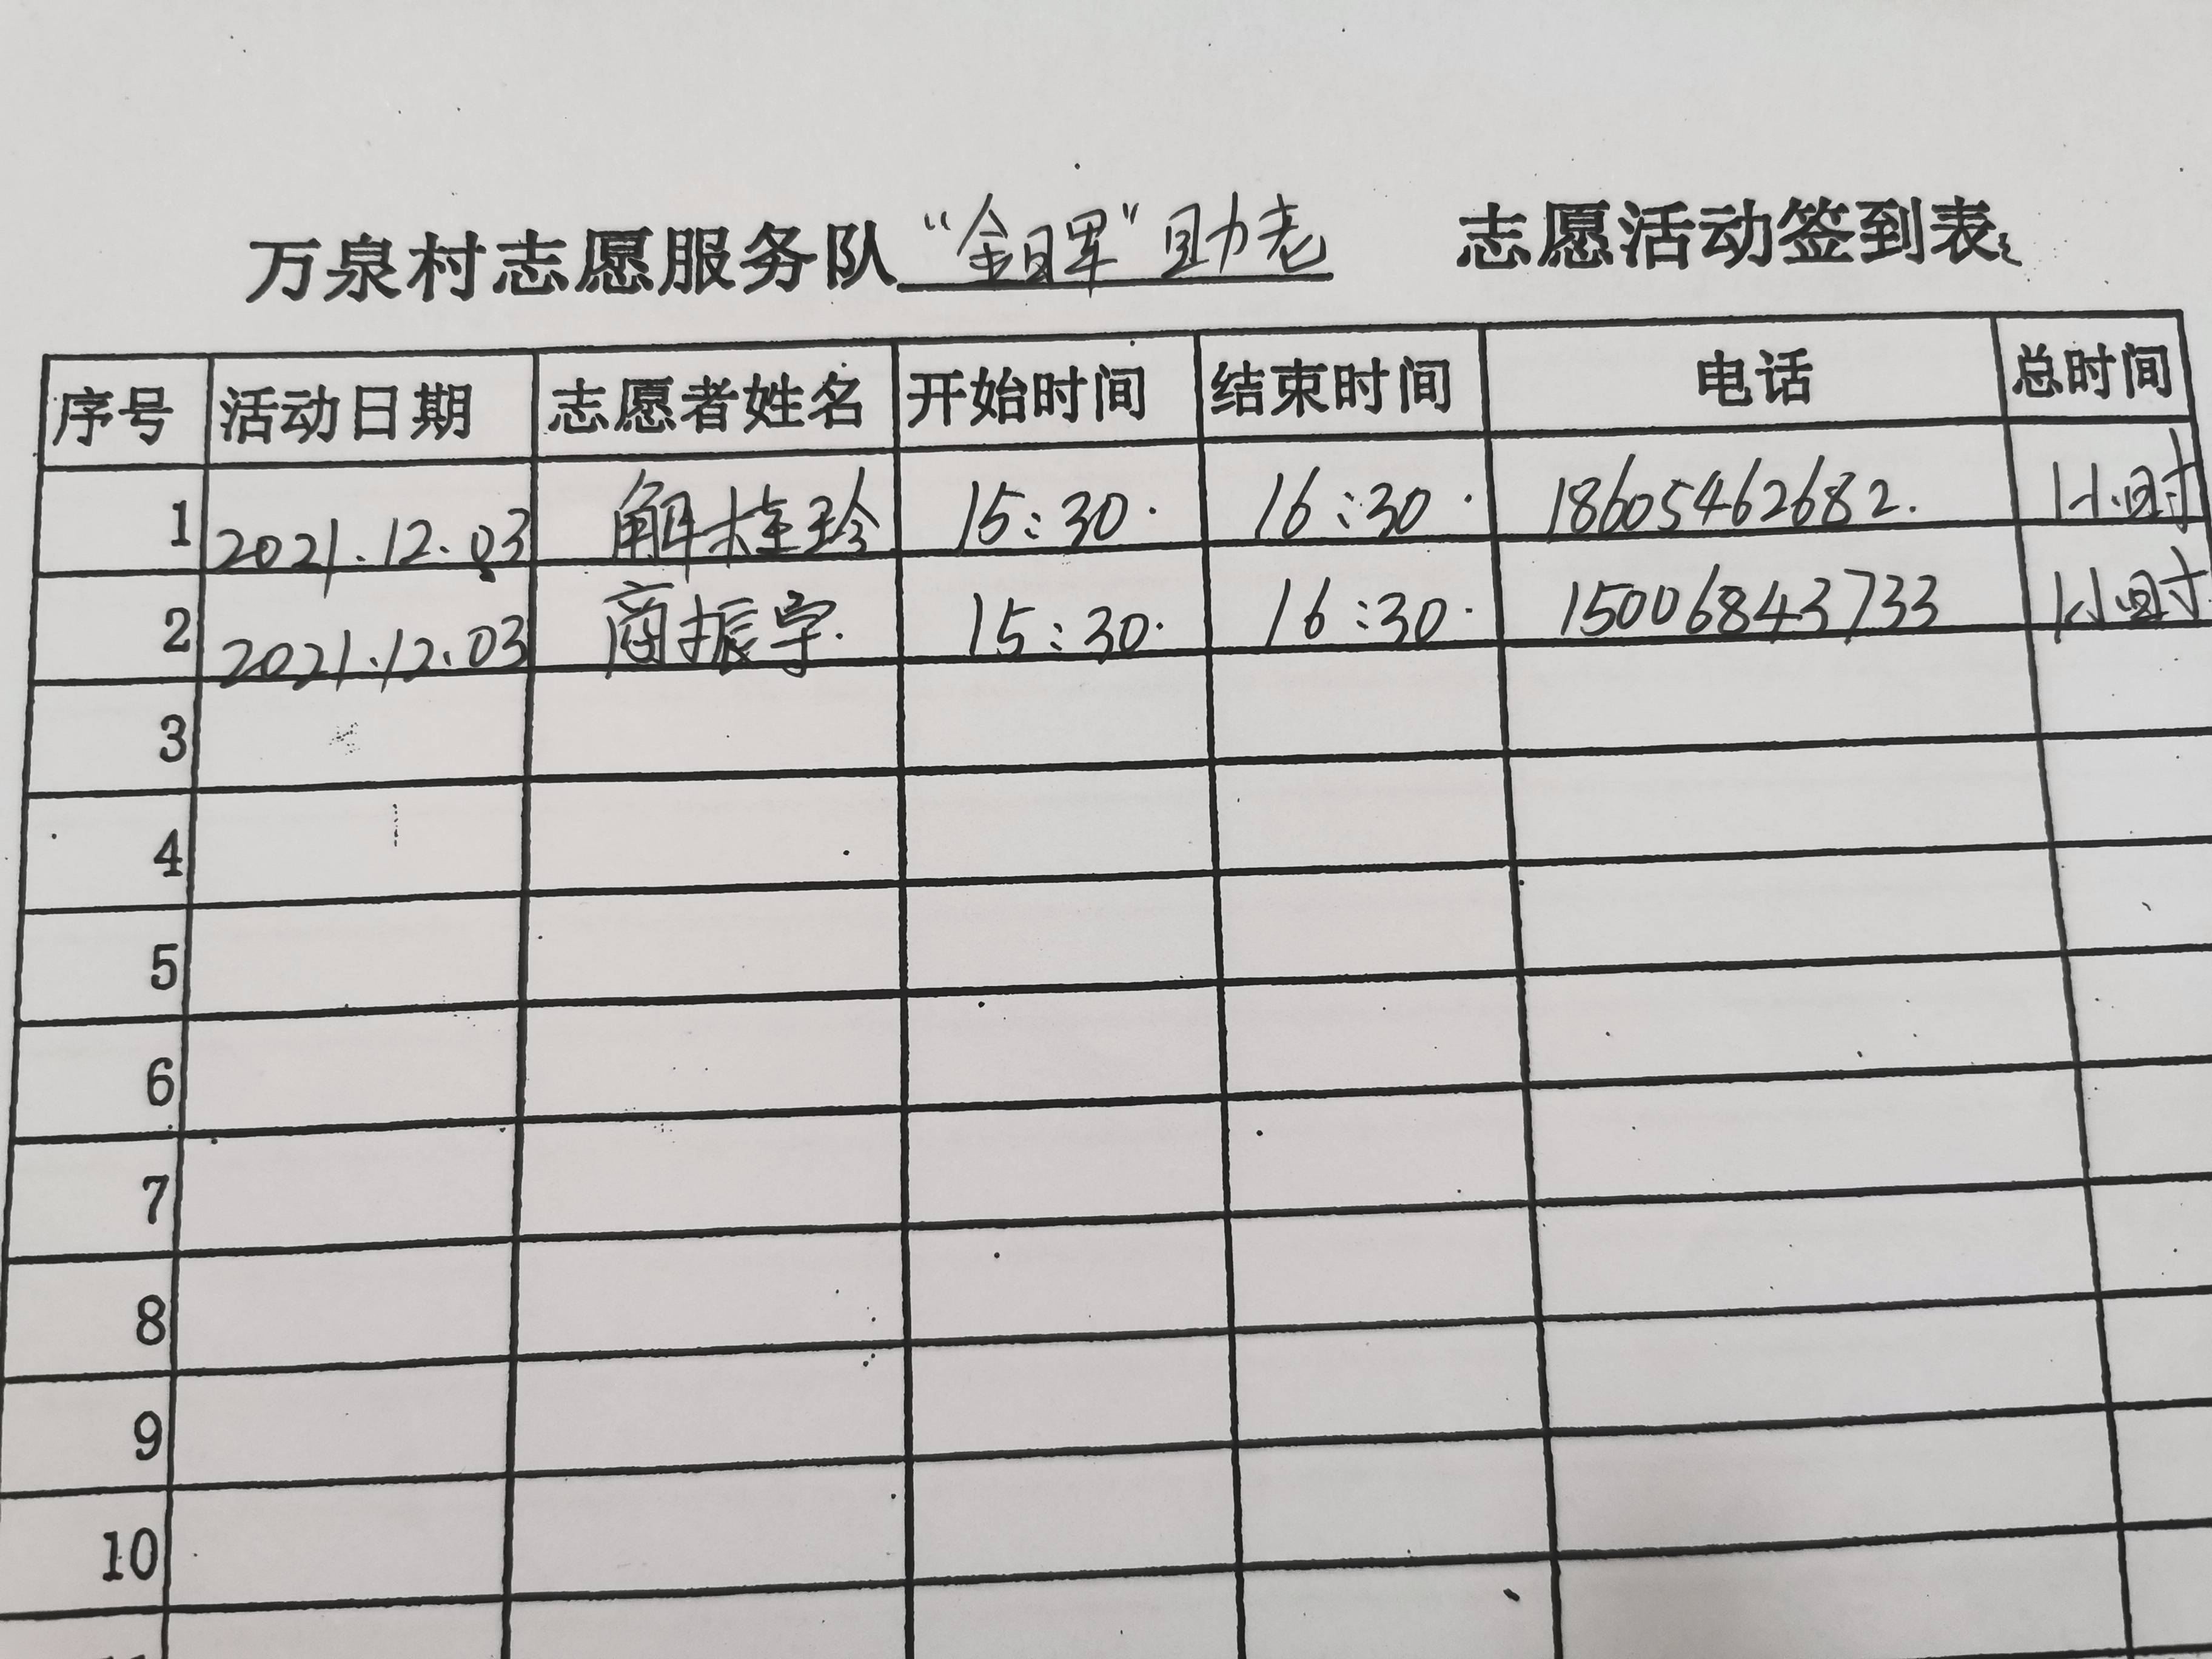 万泉村志愿服务队“金晖”助老 志愿活动签到表
序号 活动日期 志愿者姓名 开始时间 结束时间 电话 总时间
1 2021.12.03 解桂玲 15:30. 16:30. 18605462682. 1小时
2 2021.12.03 商振宇. 15:30. 16:30. 15006843733 1小时
3
4
5
6
7
8
9
10